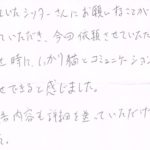 いたシッターさんにお願いすることが
ていただき、今回依頼させていただ
せ時に、しっかり猫とコミュニケーション
せできると感じました。
告内容も詳細を送っていただけ